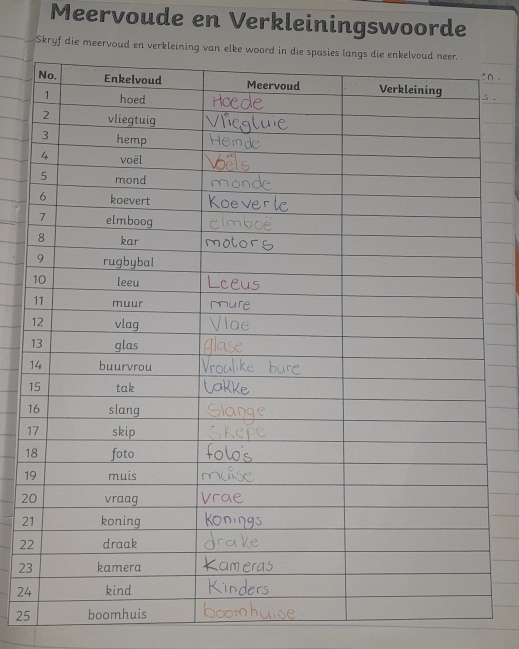 Meervoude en Verkleiningswoorde
Skryf die meervoud en verkleining van elke woord in die spasies langs die enkelvoud neer.
No. Enkelvoud Meervoud Verkleining
1 hoed Hoede
2 vliegtuig Vliegtuie
3 hemp Hemde
4 voël Voëls
5 mond monde
6 koevert Koeverte
7 elmboog elmboë
8 kar motors
9 rugbybal
10 leeu Leeus
11 muur mure
12 vlag Vlae
13 glas glase
14 buurvrou Vroulike bure
15 tak takke
16 slang Slange
17 skip Skepe
18 foto foto's
19 muis muise
20 vraag vrae
21 koning konings
22 draak drake
23 kamera Kameras
24 kind Kinders
25 boomhuis boomhuise